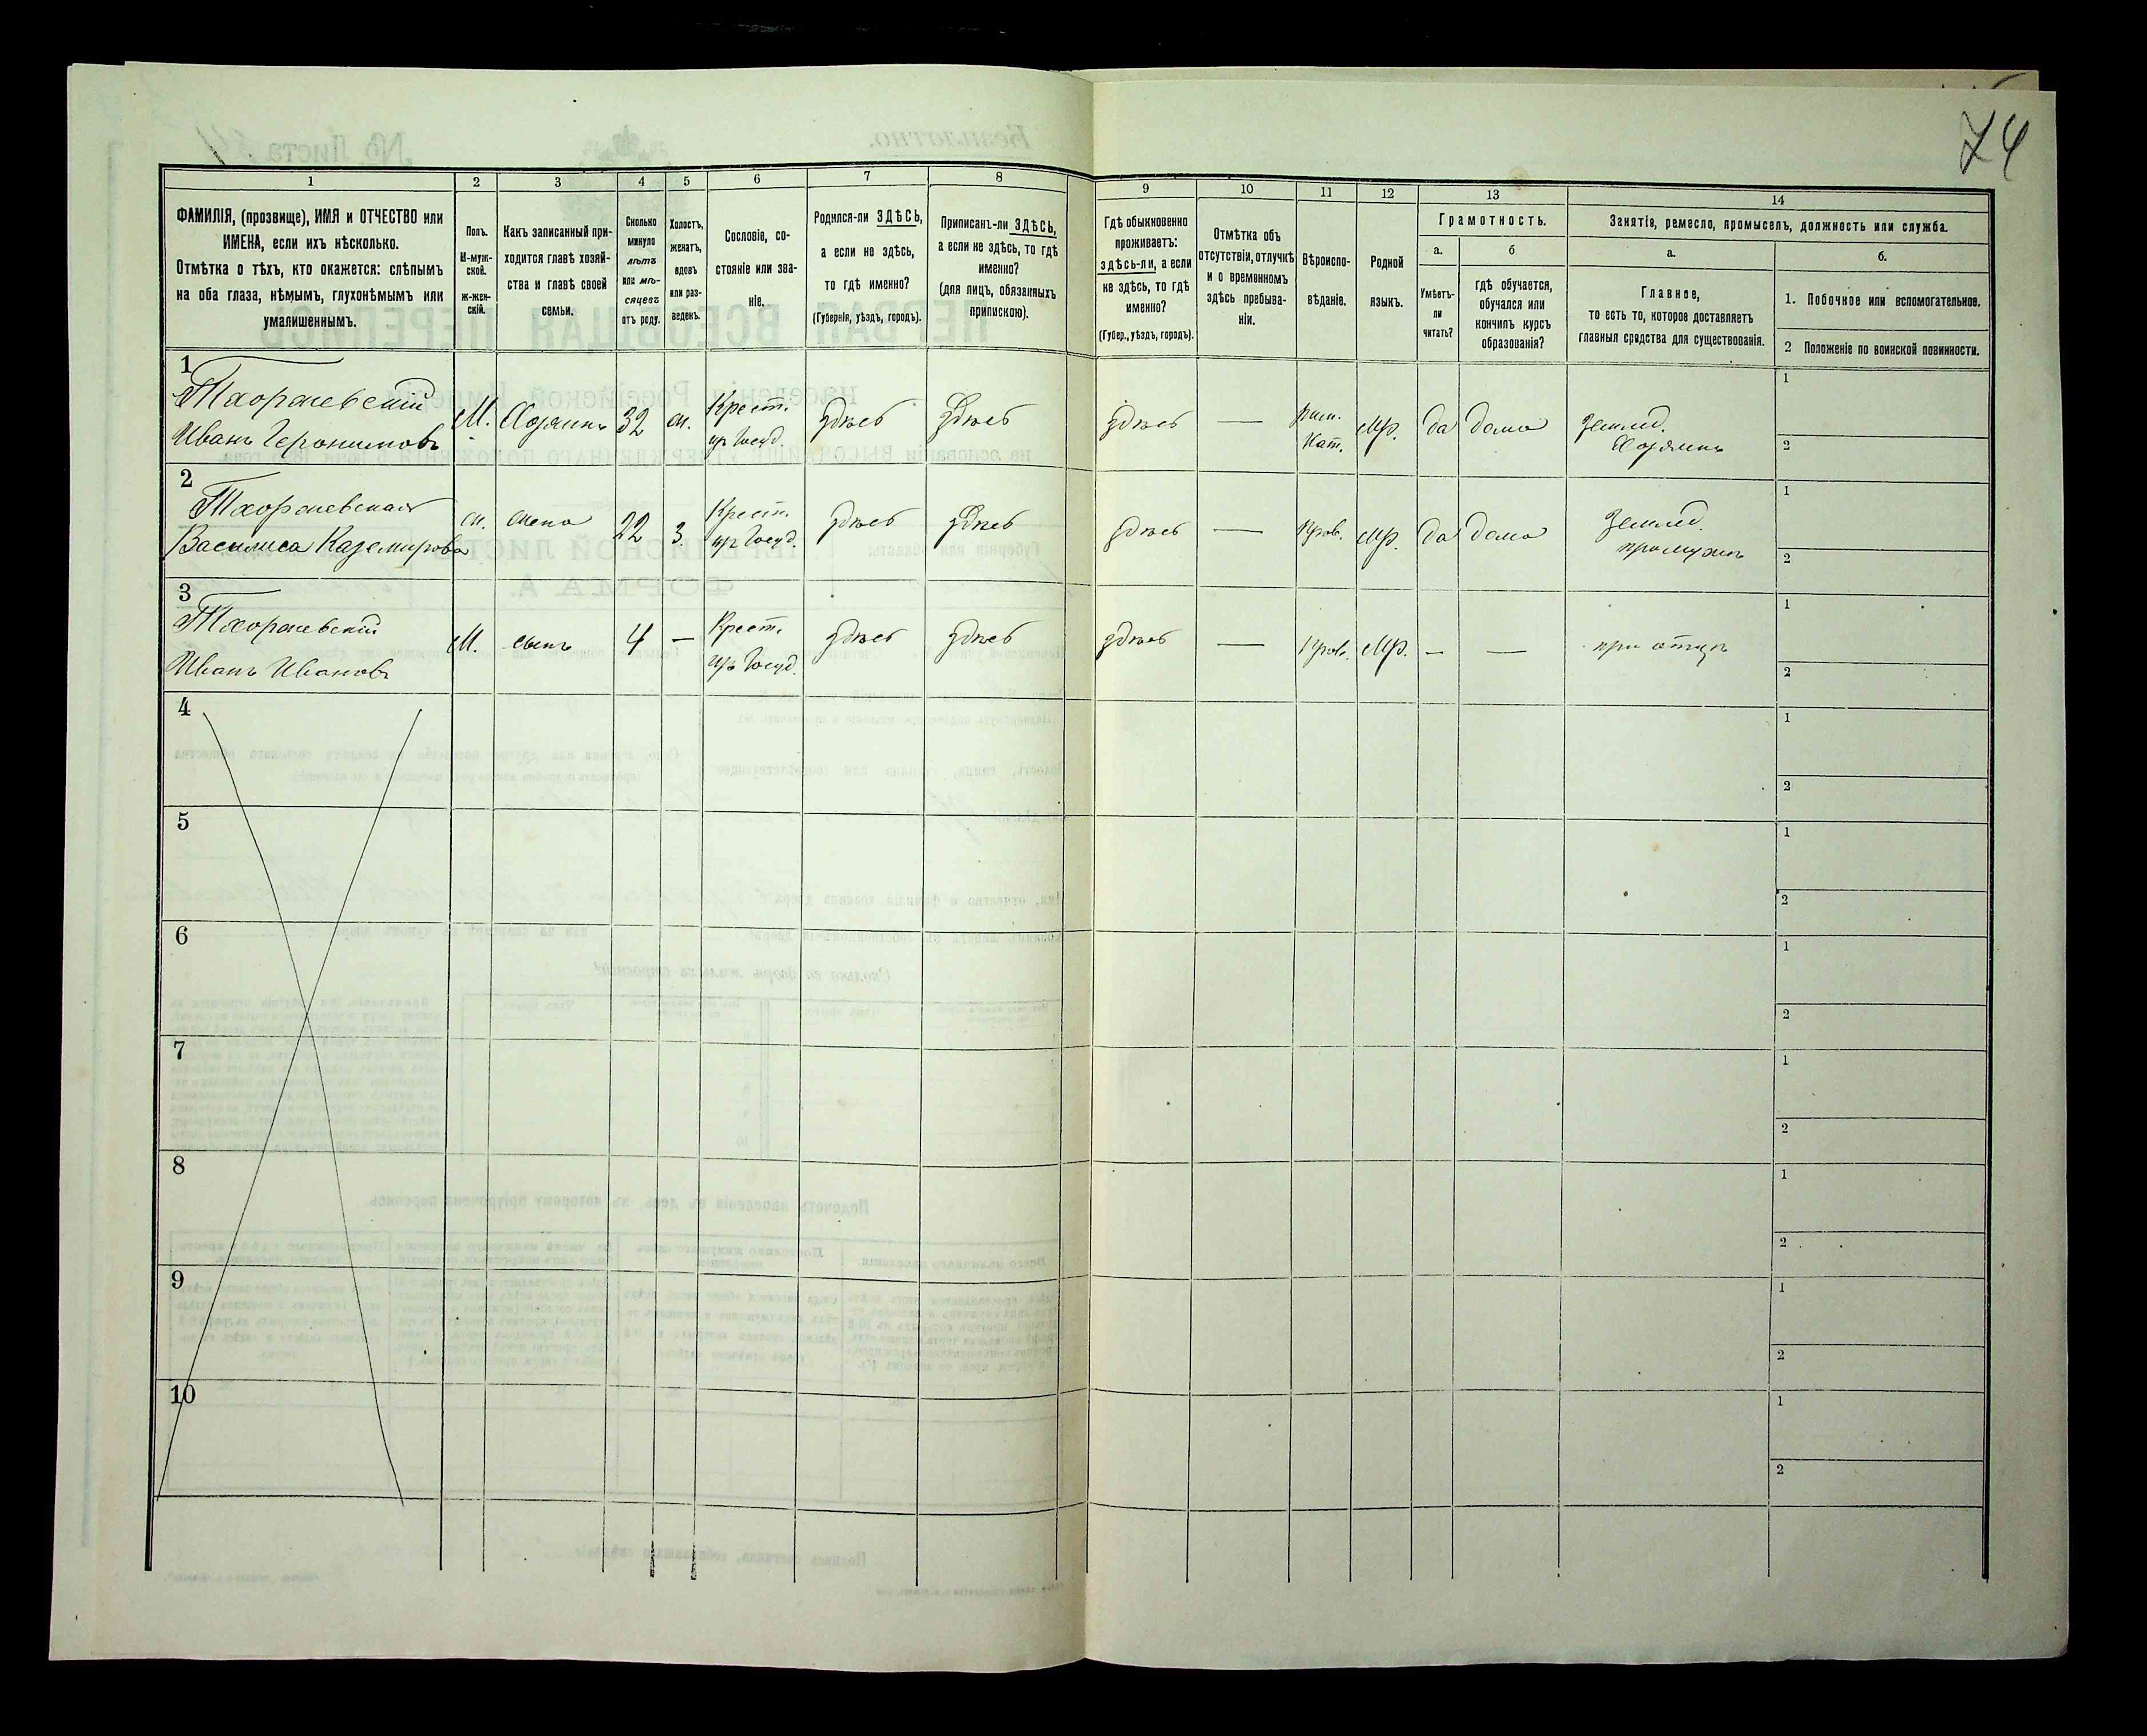 74
1 2 3 4 5 6 7 8 9 10 11 12 13 14
ФАМИЛІЯ, (прозвище), ИМЯ и ОТЧЕСТВО или
ИМЕНА, если ихъ нѣсколько.
Отмѣтка о тѣхъ, кто окажется: слѣпымъ
на оба глаза, нѣмымъ, глухонѣмымъ или
умалишеннымъ.
Полъ.
М-муж-
ской.
ж-жен-
скій.
Какъ записанный при-
ходится главѣ хозяй-
ства и главѣ своей
семьи.
Сколько
минуло
лѣтъ
или мѣ-
сяцевъ
отъ роду.
Холостъ,
женатъ,
вдовъ
или раз-
веденъ.
Сословіе, со-
стояніе или зва-
ніе.
Родился-ли ЗДѢСЬ,
а если не здѣсь,
то гдѣ именно?
(Губернія, уѣздъ, городъ).
Приписанъ-ли ЗДѢСЬ,
а если не здѣсь, то гдѣ
именно?
(для лицъ, обязанныхъ
припискою).
Гдѣ обыкновенно
проживаетъ:
здѣсь-ли, а если
не здѣсь, то гдѣ
именно?
(Губер., уѣздъ, городъ).
Отмѣтка объ
отсутствіи, отлучкѣ
и о временномъ
здѣсь пребыва-
ніи.
Вѣроиспо-
вѣданіе.
Родной
языкъ.
Грамотность.
а.
Умѣетъ-
ли
читать?
б
гдѣ обучается,
обучался или
кончилъ курсъ
образованія?
Занятія, ремесло, промыселъ, должность или служба.
а.
Главное,
то есть то, которое доставляетъ
главныя средства для существованія.
б.
1. Побочное или вспомогательное.
2 Положеніе по воинской повинности.
1
Иванъ Іеронимовъ
М. Хозяинъ 32 ж. Крест. изъ Госуд. здѣсь здѣсь здѣсь — Рим. Кат. Мр. да дома Землед. Хозяинъ
1
2
2
Василиса Каземирова
ж. жена 22 з. Крест. изъ Госуд. здѣсь здѣсь здѣсь — Прав. Мр. да дома Землед. при мужѣ
1
2
3
Иванъ Ивановъ
М. сынъ 4 — Крест. изъ Госуд. здѣсь здѣсь здѣсь — Прав. Мр. — — при отцѣ
1
2
4
1
2
5
1
2
6
1
2
7
1
2
8
1
2
9
1
2
10
1
2